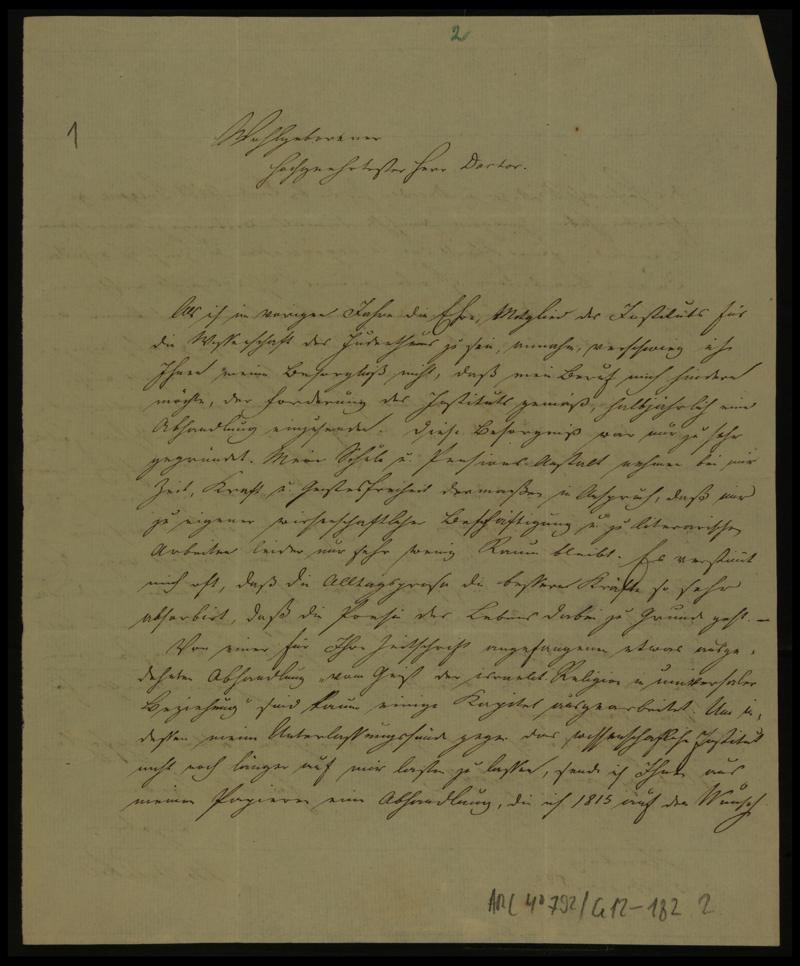 2
1
Wohlgeborener
Hochgeehrtester Herr Doctor.
Als ich im vorigen Jahre die Ehre, Mitglied des Instituts für
die Wissenschaft des Judenthums zu sein, annahm, verschwieg ich
Ihnen meine Besorgniß nicht, daß mein Beruf mich hindern
möchte, der Forderung des Instituts gemäß, halbjährlich eine
Abhandlung einzusenden. Diese Besorgniß war nur zu sehr
gegründet. Meine Schule u. Pensions-Anstalt nehmen bei mir
Zeit, Kraft u. Geistesfreiheit dermaßen in Anspruch, daß mir
zu eigener wissenschaftlicher Beschäftigung u. zu literarischen
Arbeiten leider nur sehr wenig Raum bleibt. Es verstimmt
mich oft, daß die Alltagsprosa die besseren Kräfte so sehr
absorbirt, daß die Poesie des Lebens dabei zu Grunde geht. –
Von einer für Ihre Zeitschrift angefangenen etwas ausge-
dehnten Abhandlung „vom Geist der israelit. Religion in universaler
Beziehung" sind kaum einige Kapitel ausgearbeitet. Um in-
dessen meine Unterlassungssünde gegen das wissenschaftliche Institut
nicht noch länger auf mir lasten zu lassen, sende ich Ihnen aus
meinen Papieren eine Abhandlung, die ich 1815 auf den Wunsch
ARC 4° 792/G12-182 2